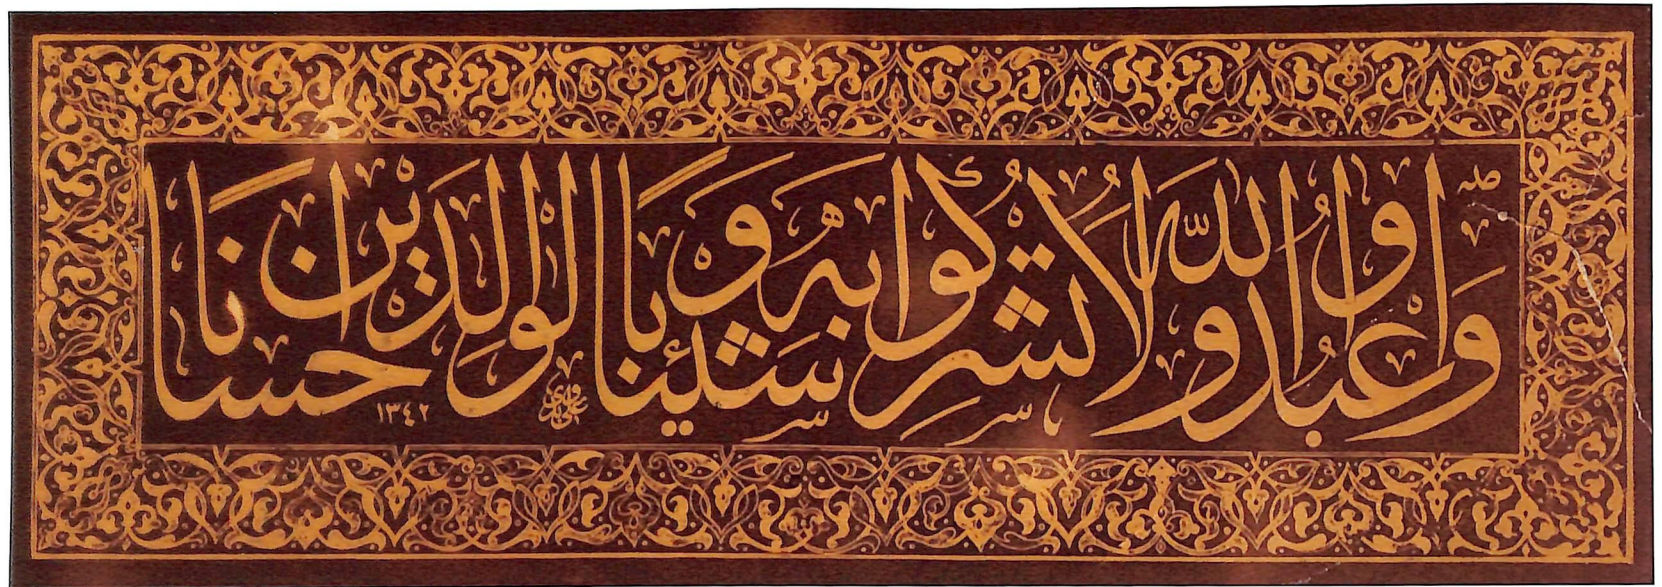 وَاعْبُدُوا اللّٰهَ وَلَا تُشْرِكُوا بِهِ شَيْئًا وَبِالْوَالِدَيْنِ اِحْسَانًا
١٣٤٢